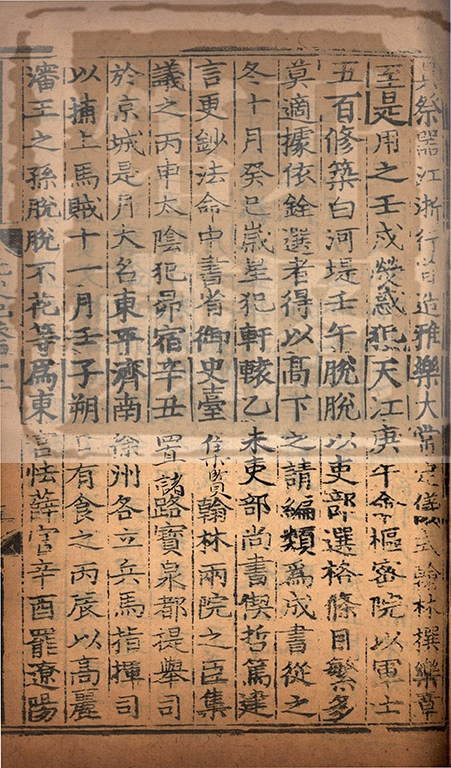 祭器江浙行省造雅樂大常定儀式翰林撰樂章
至是用之壬戌熒惑犯天江庚午命樞密院以軍士
五百修築白河堤壬午脫脫以吏部選格條目繁多
莫適據依銓選者得以高下之請編類爲成書從之
冬十月癸巳歲星犯軒轅乙未吏部尚書偰哲篤建
言更鈔法命中書省御史臺集賢翰林兩院之臣集
議之丙申太陰犯昴宿辛丑置諸路寶泉都提舉司
於京城是月大名東平濟南徐州各立兵馬指揮司
以捕上馬賊十一月壬子朔日有食之丙辰以高麗
瀋王之孫脫脫不花等爲東宮怯薛官辛酉罷遼陽